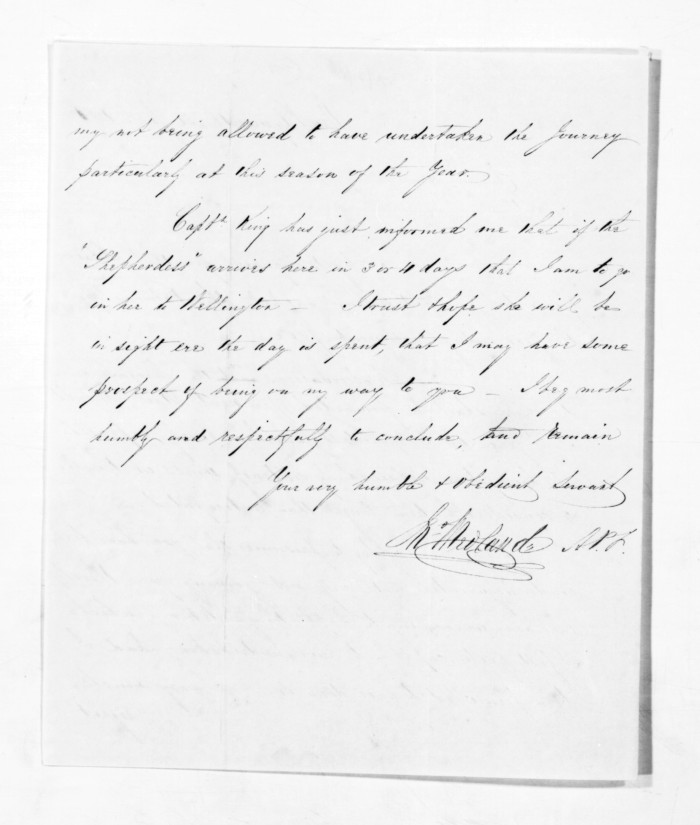 my not being allowed to have undertaken the Journey
particularly at this season of the Year.
Captn. King has just informed me that if the
"Shepherdess" arrives here in 3 or 4 days that I am to go
in her to Wellington - I trust & hope she will be
in sight ere the day is spent, that I may have some
prospect of being on my way to you - I beg most
humbly and respectfully to conclude, and remain
Your very humble & obedient Servant
A.P.F.